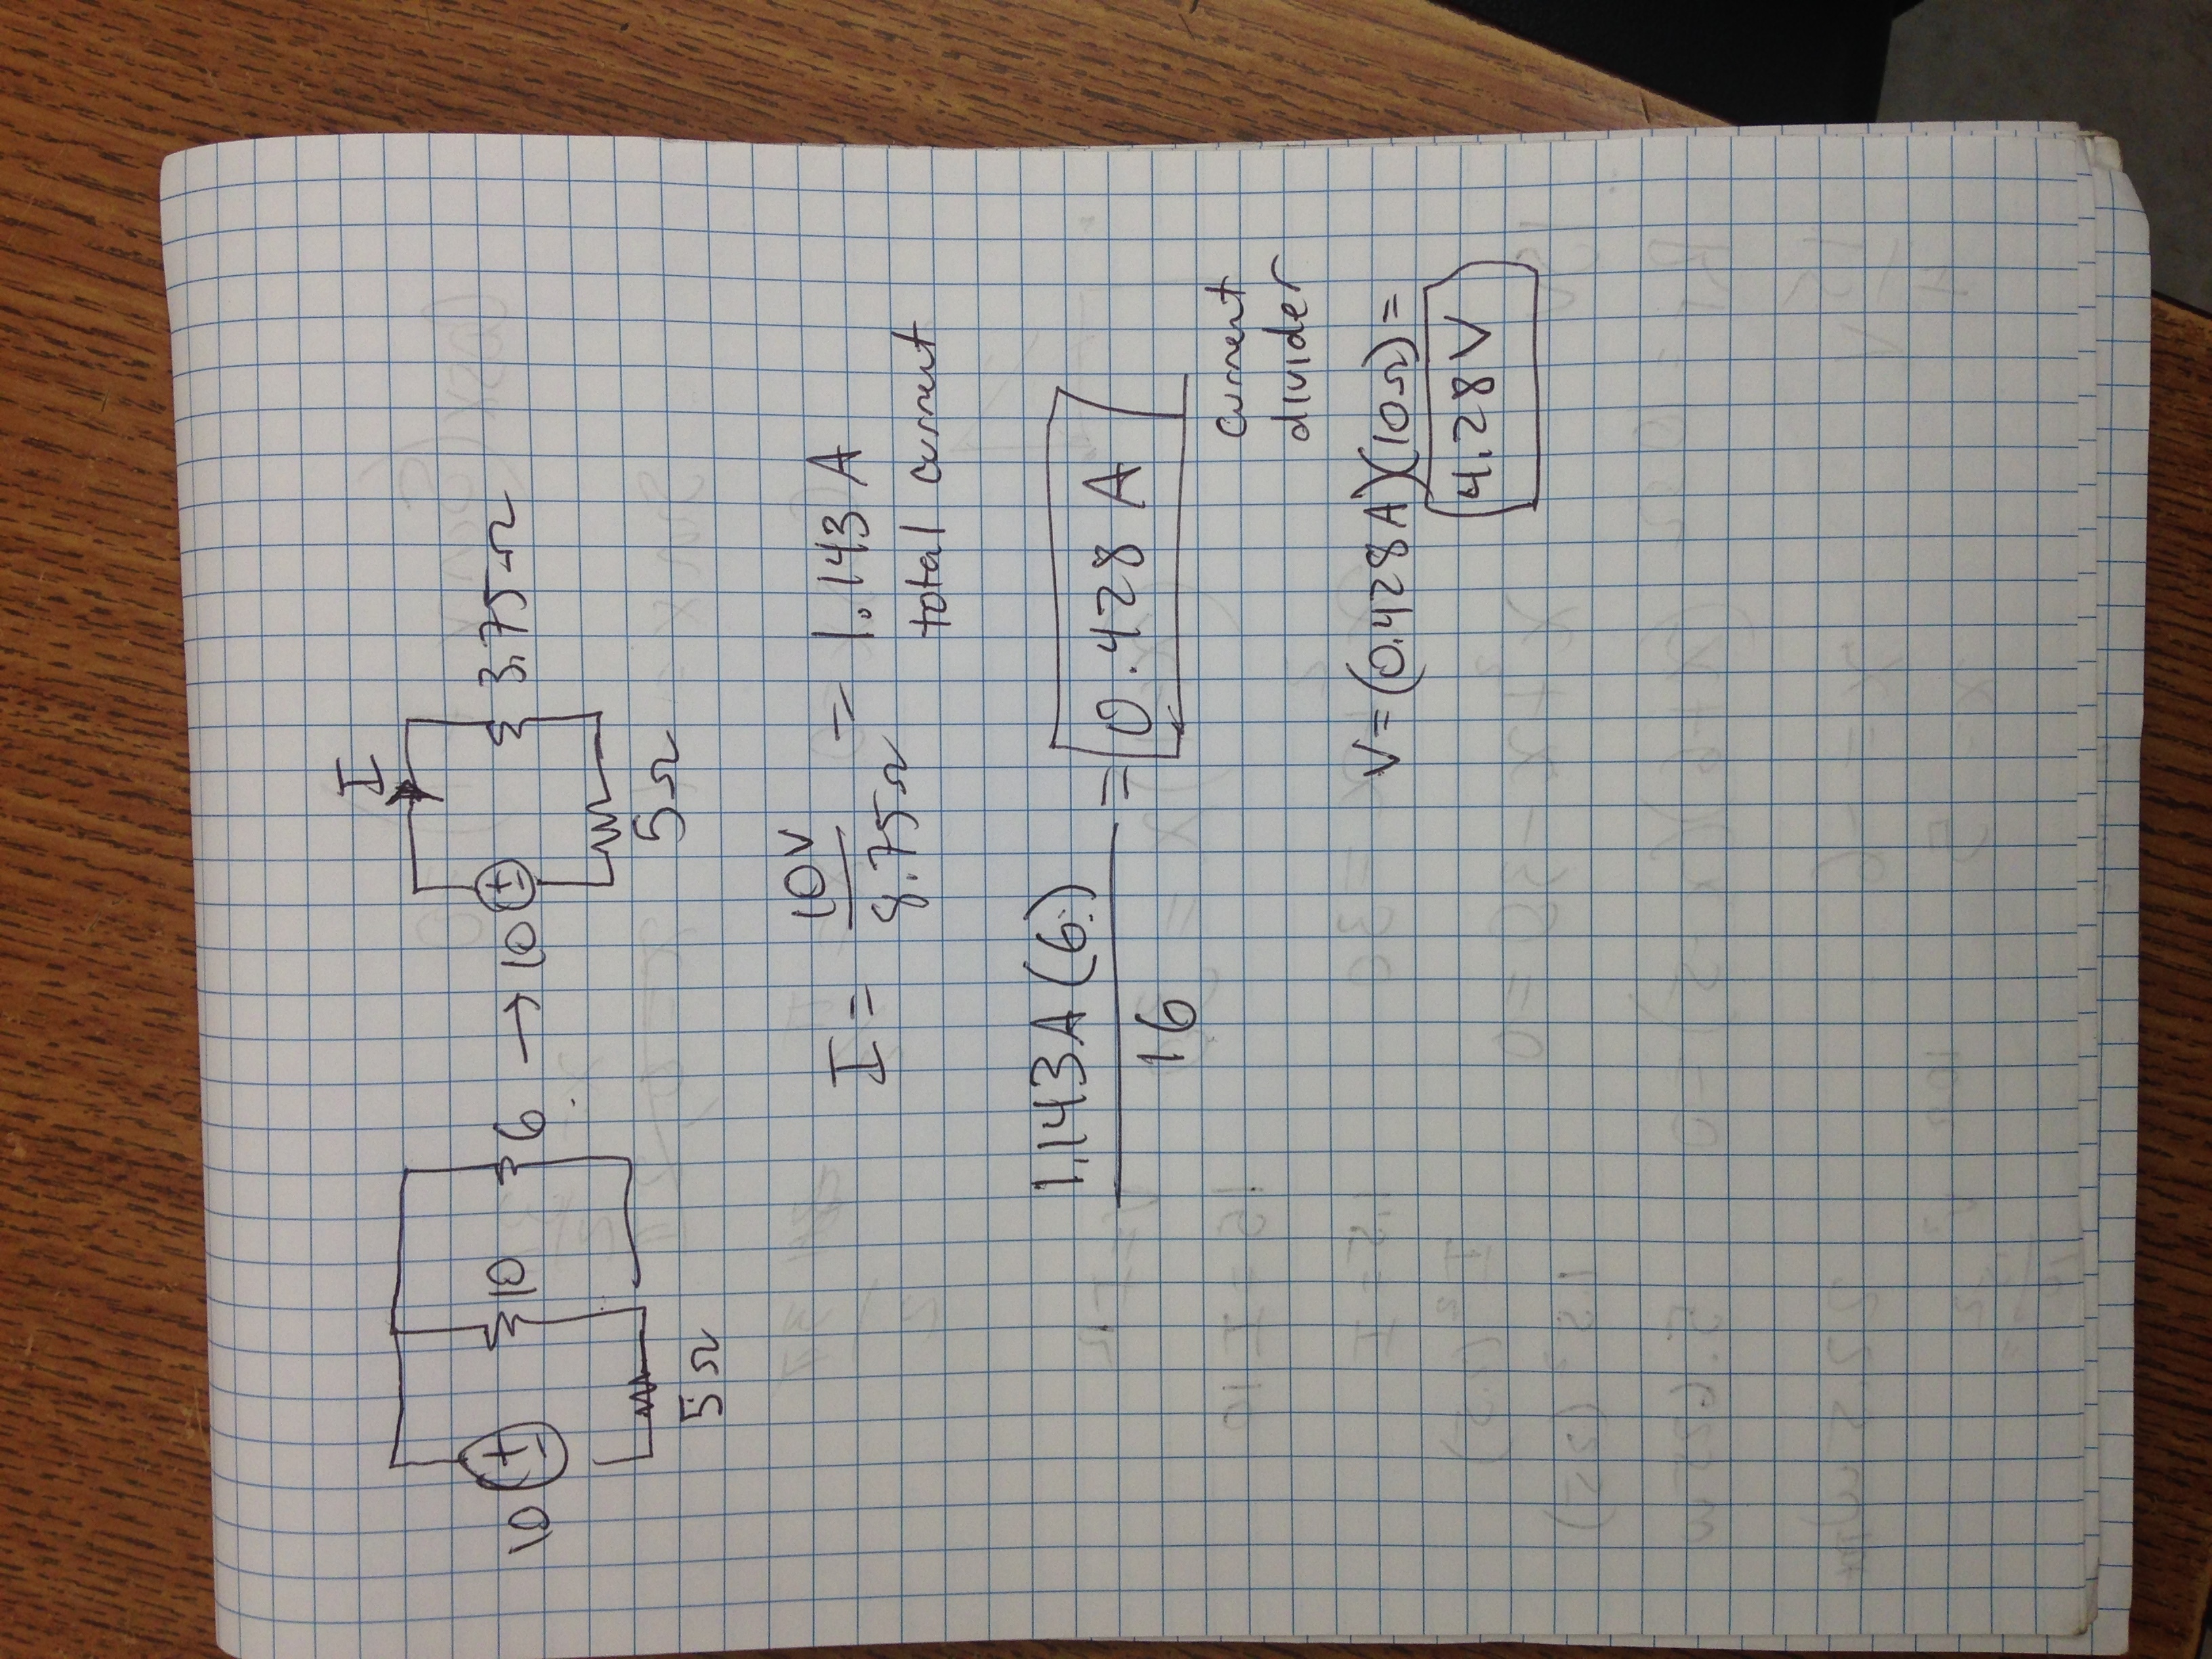 I
10 10 6 → 10 3.75Ω
5Ω 5Ω
I = 10V / 8.75Ω = 1.143 A
total current
1.143A (6) / 16 = 0.428 A
current
divider
V = (0.428A)(10Ω) =
4.28 V